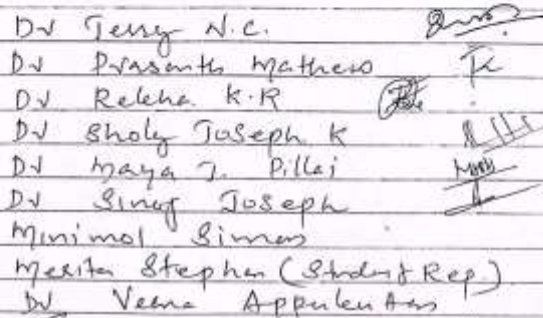 Dr Jerry N.C.
Dr Prasanth Mathew
Dr Rekha K.R
Dr Sholy Joseph K
Dr Maya J. Pillai
Dr Sinoj Joseph
Minimol
Merita Stephen (Student Rep.)
Dr Veena Appukuttan